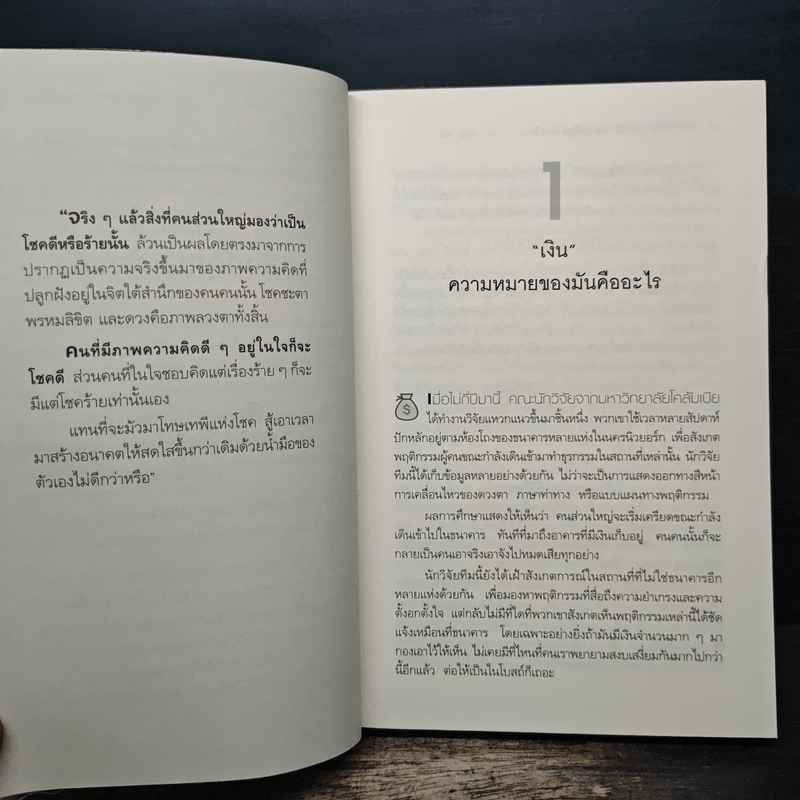 "จริง ๆ แล้วสิ่งที่คนส่วนใหญ่มองว่าเป็น
โชคดีหรือร้ายนั้น ล้วนเป็นผลโดยตรงมาจากการ
ปรากฏเป็นความจริงขึ้นมาของภาพความคิดที่
ปลูกฝังอยู่ในจิตใต้สำนึกของคนคนนั้น โชคชะตา
พรหมลิขิต และดวงคือภาพลวงตาทั้งสิ้น
คนที่มีภาพความคิดดี ๆ อยู่ในใจก็จะ
โชคดี ส่วนคนที่ในใจชอบคิดแต่เรื่องร้าย ๆ ก็จะ
มีแต่โชคร้ายเท่านั้นเอง
แทนที่จะมัวมาโทษเทพีแห่งโชค สู้เอาเวลา
มาสร้างอนาคตให้สดใสขึ้นกว่าเดิมด้วยน้ำมือของ
ตัวเองไม่ดีกว่าหรือ"
1
"เงิน"
ความหมายของมันคืออะไร
เมื่อไม่กี่ปีมานี้ คณะนักวิจัยจากมหาวิทยาลัยโคลัมเบีย
ได้ทำงานวิจัยแหวกแนวขึ้นมาชิ้นหนึ่ง พวกเขาใช้เวลาหลายสัปดาห์
ปักหลักอยู่ตามห้องโถงของธนาคารหลายแห่งในนครนิวยอร์ก เพื่อสังเกต
พฤติกรรมผู้คนขณะกำลังเดินเข้ามาทำธุรกรรมในสถานที่เหล่านั้น นักวิจัย
ทีมนี้ได้เก็บข้อมูลหลายอย่างด้วยกัน ไม่ว่าจะเป็นการแสดงออกทางสีหน้า
การเคลื่อนไหวของดวงตา ภาษาท่าทาง หรือแบบแผนทางพฤติกรรม
ผลการศึกษาแสดงให้เห็นว่า คนส่วนใหญ่จะเริ่มเครียดขณะกำลัง
เดินเข้าไปในธนาคาร ทันทีที่มาถึงอาคารที่มีเงินเก็บอยู่ คนคนนั้นก็จะ
กลายเป็นคนเอาจริงเอาจังไปหมดเสียทุกอย่าง
นักวิจัยทีมนี้ยังได้เฝ้าสังเกตการณ์ในสถานที่ที่ไม่ใช่ธนาคารอีก
หลายแห่งด้วยกัน เพื่อมองหาพฤติกรรมที่สื่อถึงความยำเกรงและความ
ตั้งอกตั้งใจ แต่กลับไม่มีที่ใดที่พวกเขาสังเกตเห็นพฤติกรรมเหล่านี้ได้ชัด
แจ้งเหมือนที่ธนาคาร โดยเฉพาะอย่างยิ่งถ้ามันมีเงินจำนวนมาก ๆ มา
กองเอาไว้ให้เห็น ไม่เคยมีที่ไหนที่คนเราพยายามสงบเสงี่ยมกันมากไปกว่า
นี้อีกแล้ว ต่อให้เป็นในโบสถ์ก็เถอะ